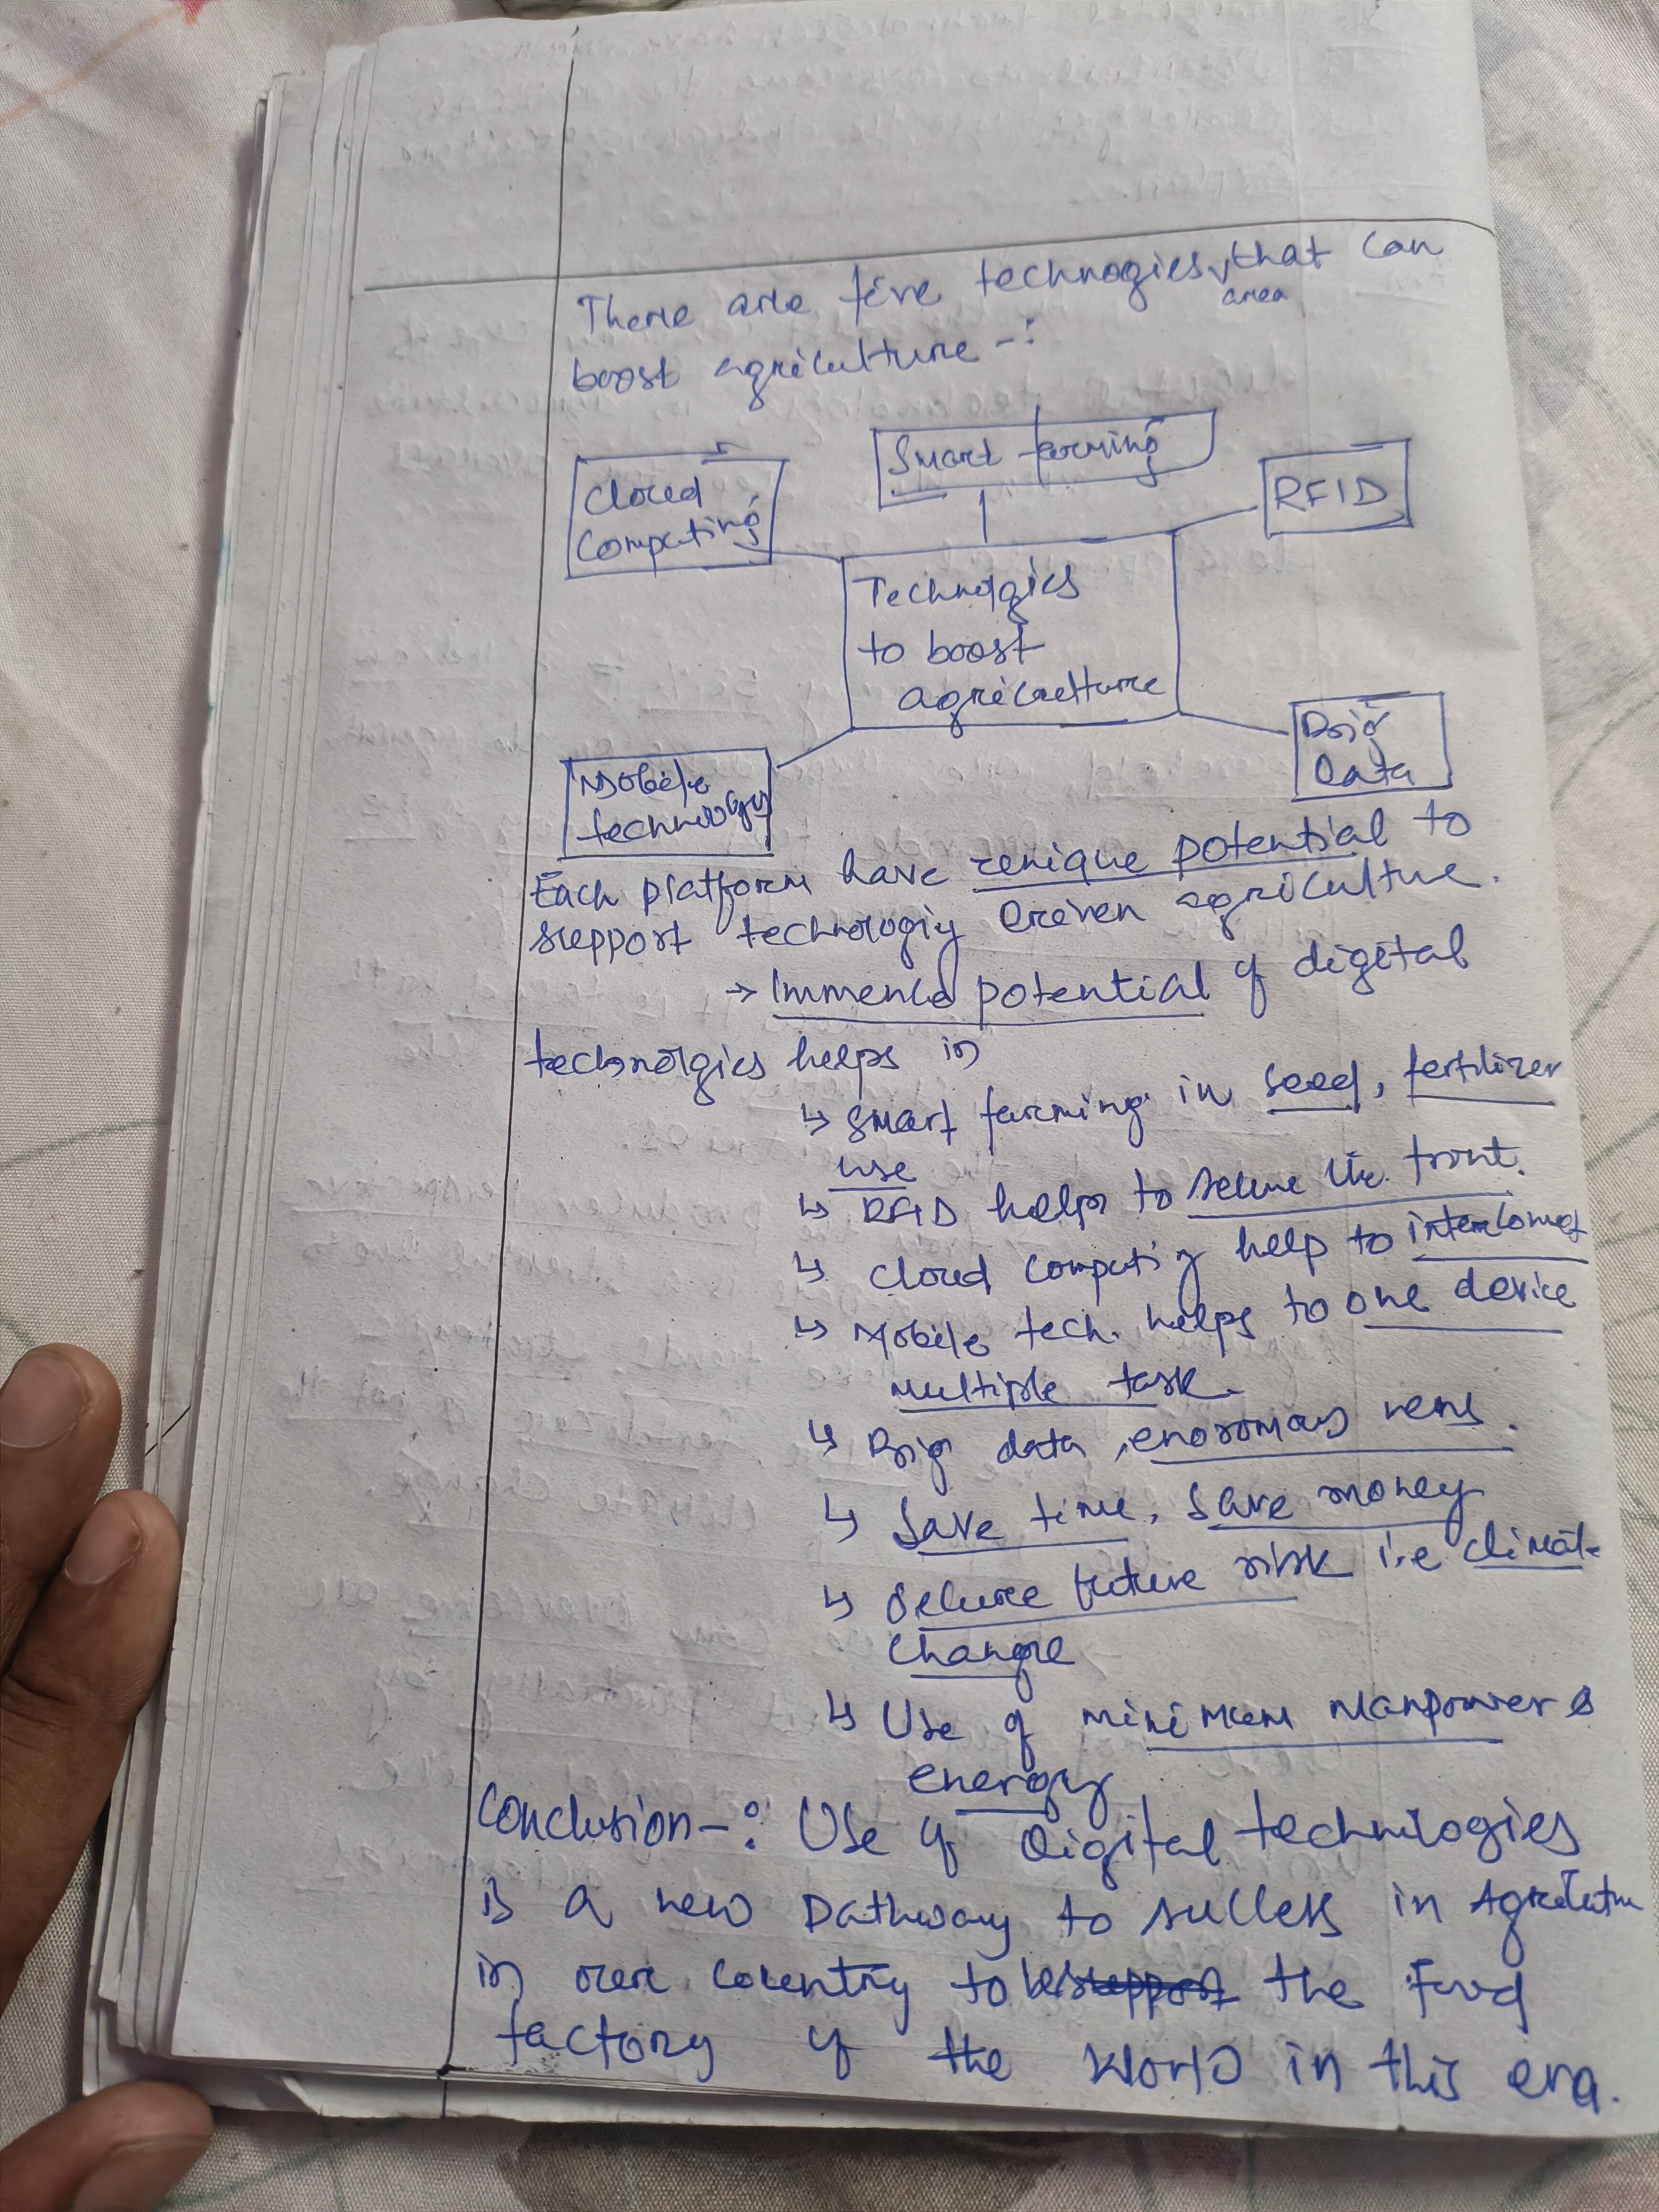 There are five technogies, area that can
boost agriculture -:
Smart farming
Cloud
Computing
RFID
Technolgies
to boost
agriculture
Mobile
technology
Big
Data
Each platform have unique potential to
support technology driven agriculture.
→ Immence potential of digital
technolgies helps in
↳ smart farming in seed, fertilizer
use
↳ RFID helps to secure the front.
↳ cloud computing help to
↳ Mobile tech. helps to one device
multiple task.
↳ Big data, enoromous
↳ Save time, save money
↳ Secure future risk i.e climate
change
↳ Use of minimum manpower &
energy
Conclusion -: Use of Digital technologies
is a new Pathway to success in Agriculture
in our country to be the Food
factory of the World in this era.